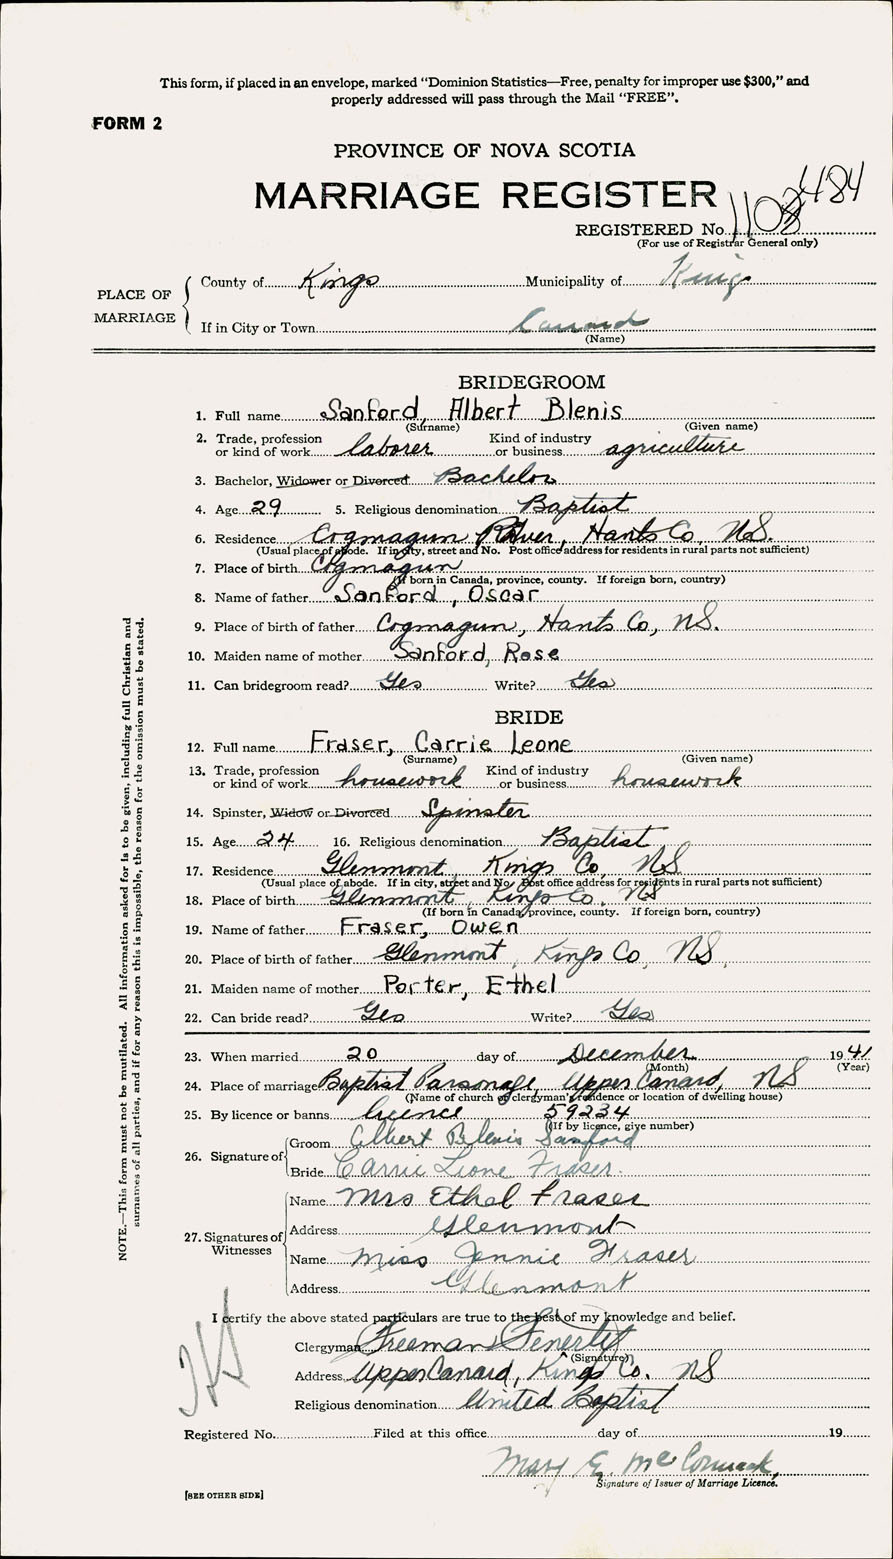 This form, if placed in an envelope, marked “Dominion Statistics—Free, penalty for improper use $300,” and
properly addressed will pass through the Mail “FREE”.
FORM 2
PROVINCE OF NOVA SCOTIA
MARRIAGE REGISTER
484
REGISTERED No. 1103
(For use of Registrar General only)
PLACE OF MARRIAGE
County of Kings Municipality of Kings
If in City or Town Canard
(Name)
BRIDEGROOM
1. Full name Sanford, Albert Blenis
(Surname) (Given name)
2. Trade, profession or kind of work laborer Kind of industry or business agriculture
3. Bachelor, Widower or Divorced Bachelor
4. Age 29 5. Religious denomination Baptist
6. Residence Cogmagun River, Hants Co, NS.
(Usual place of abode. If in city, street and No. Post office address for residents in rural parts not sufficient)
7. Place of birth Cogmagun
(If born in Canada, province, county. If foreign born, country)
8. Name of father Sanford, Oscar
9. Place of birth of father Cogmagun, Hants Co, NS.
10. Maiden name of mother Sanford, Rose
11. Can bridegroom read? Yes Write? Yes
BRIDE
12. Full name Fraser, Carrie Leone
(Surname) (Given name)
13. Trade, profession or kind of work housework Kind of industry or business housework
14. Spinster, Widow or Divorced Spinster
15. Age 24 16. Religious denomination Baptist
17. Residence Glenmont, Kings Co, NS
(Usual place of abode. If in city, street and No. Post office address for residents in rural parts not sufficient)
18. Place of birth Glenmont, Kings Co. NS
(If born in Canada, province, county. If foreign born, country)
19. Name of father Fraser, Owen
20. Place of birth of father Glenmont, Kings Co, NS,
21. Maiden name of mother Porter, Ethel
22. Can bride read? Yes Write? Yes
23. When married 20 day of December 1941
(Month) (Year)
24. Place of marriage Baptist Parsonage, Upper Canard, NS
(Name of church or clergyman's residence or location of dwelling house)
25. By licence or banns licence 59234
(If by licence, give number)
26. Signature of Groom Albert Blenis Sanford
Bride Carrie Lione Fraser.
27. Signatures of Witnesses
Name Mrs Ethel Fraser
Address Glenmont
Name Miss Jennie Fraser
Address Glenmont
I certify the above stated particulars are true to the best of my knowledge and belief.
Clergyman Freeman Fenerty
(Signature)
Address Upper Canard, Kings Co. NS
Religious denomination United Baptist
Registered No. Filed at this office day of 19
Mary E. McCormack,
Signature of Issuer of Marriage Licence.
[SEE OTHER SIDE]
NOTE.—This form must not be mutilated. All information asked for is to be given, including full Christian and
surnames of all parties, and if for any reason this is impossible, the reason for the omission must be stated.